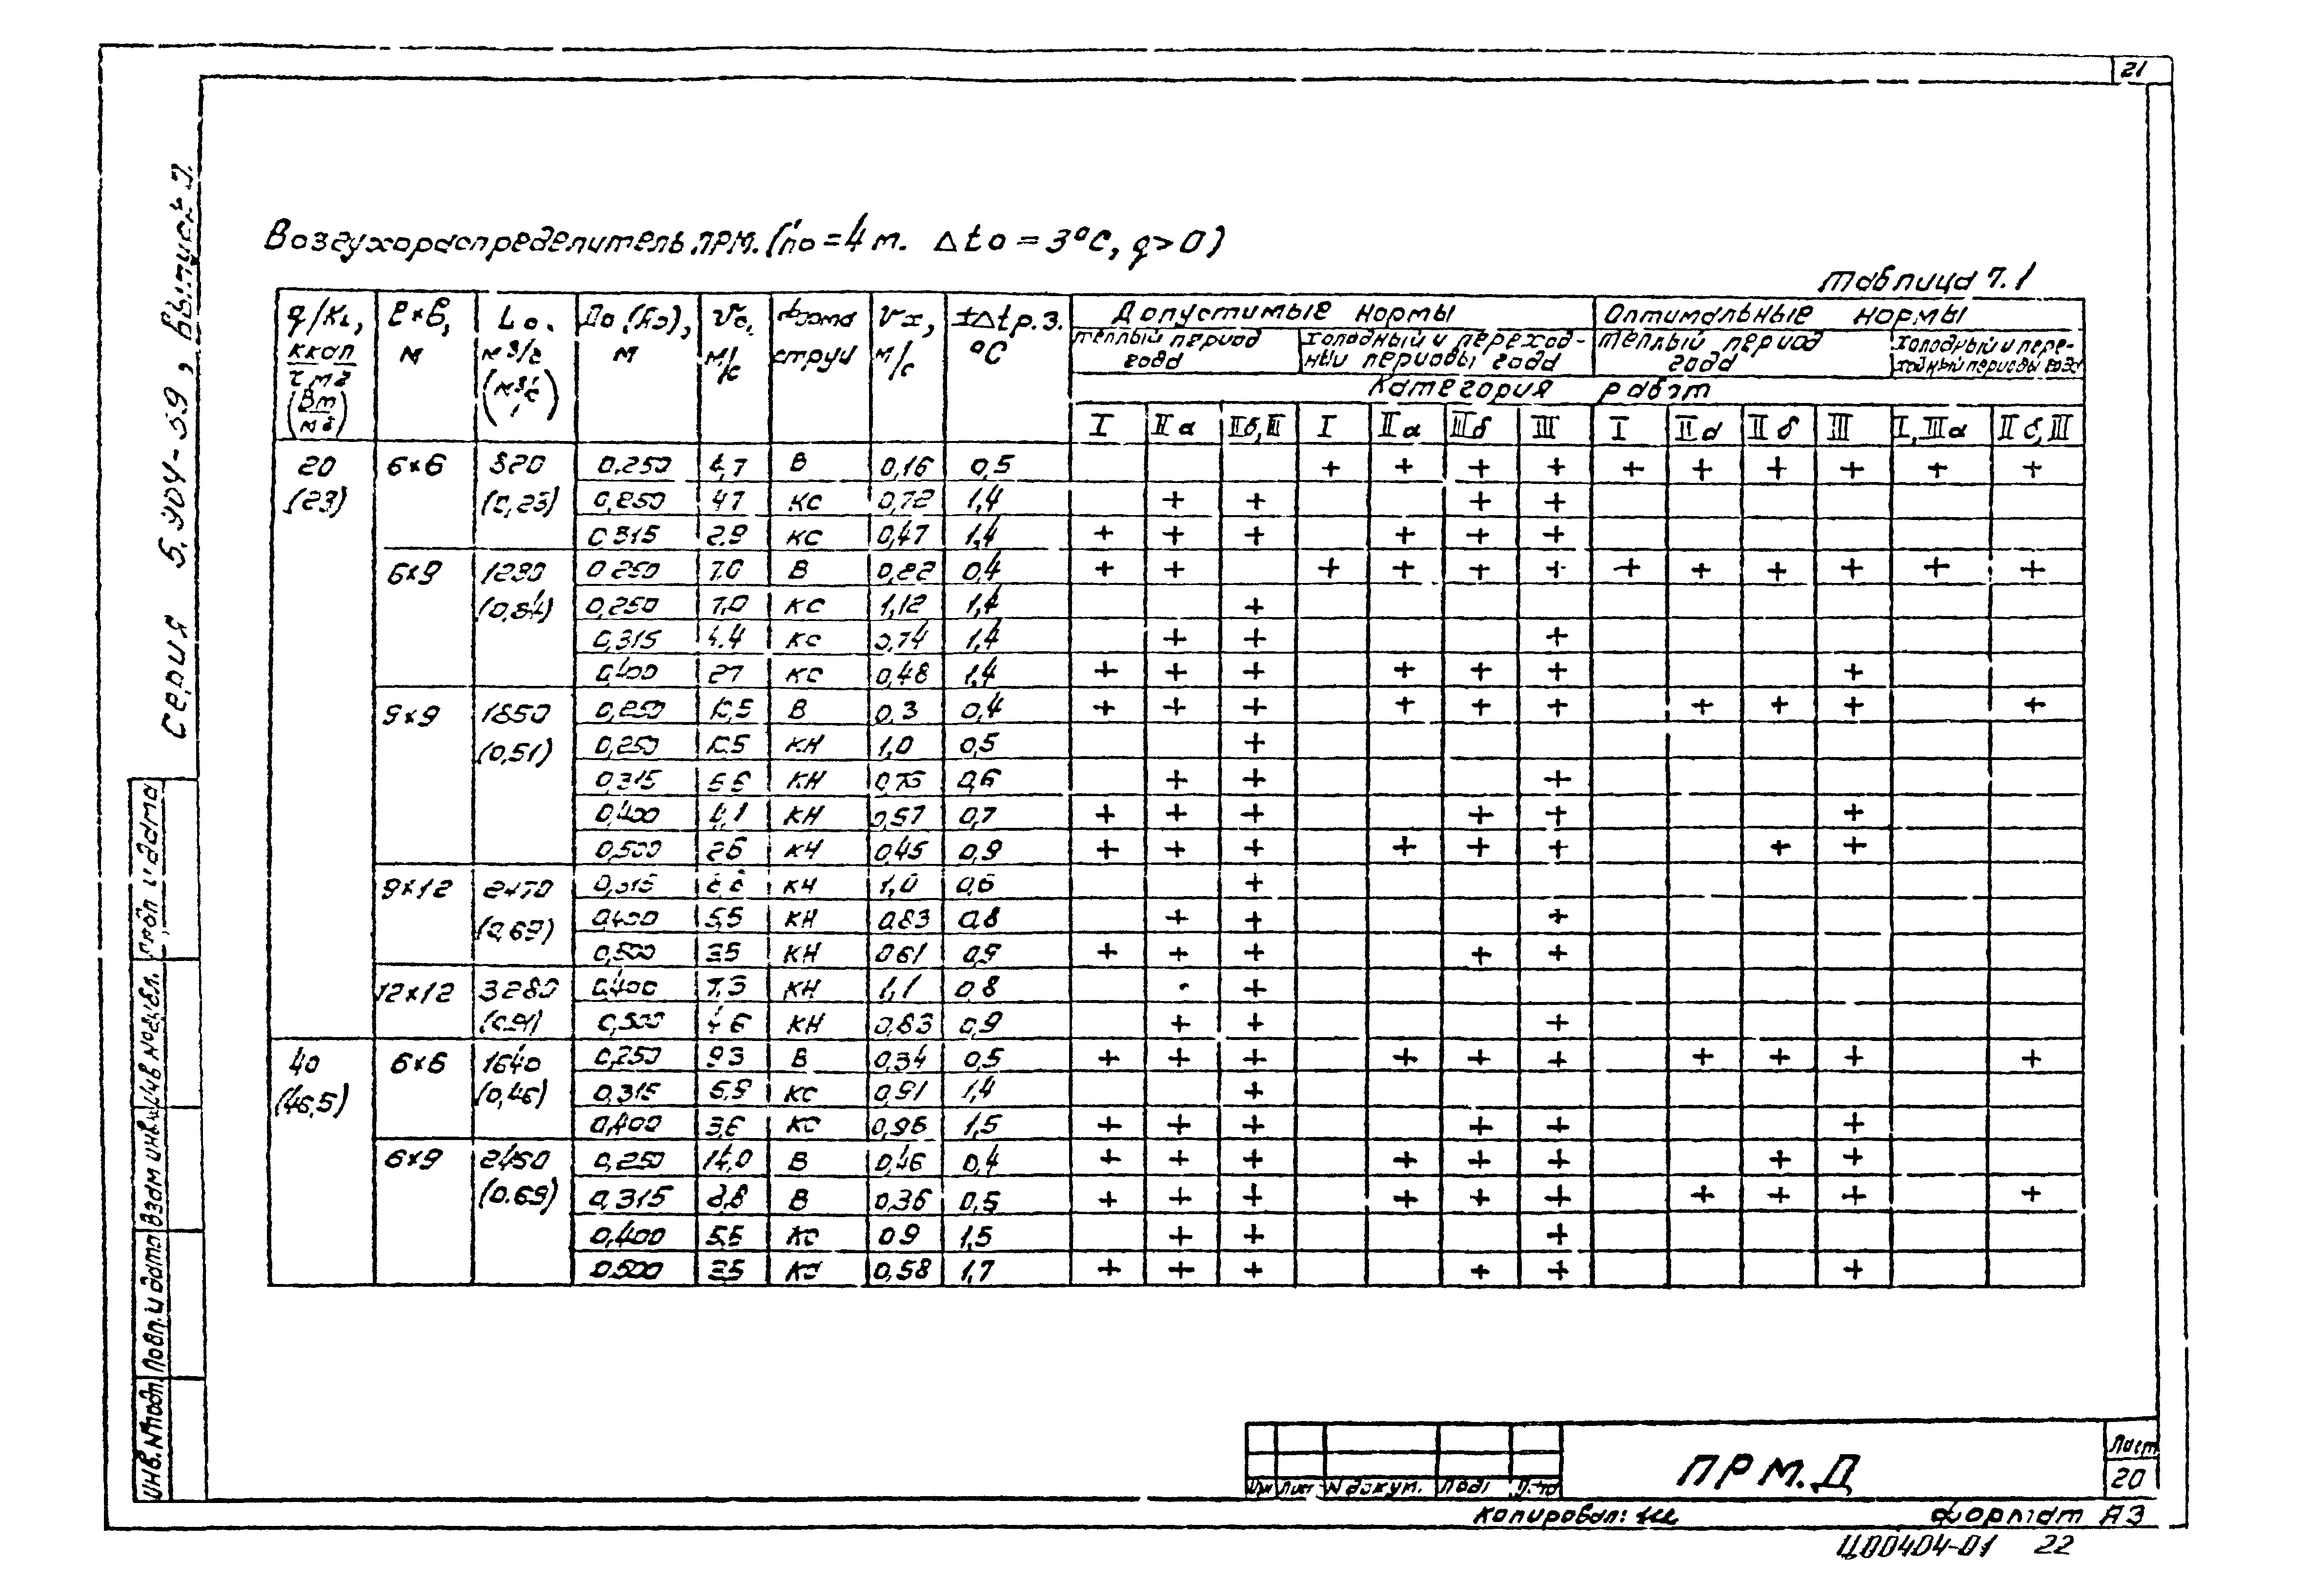 21
Серия 5.904-59, Выпуск 7.
Воздухораспределитель ПРМ. (ho = 4 м. Δto = 3°С, q > 0)
Таблица 7.1
q/KL, ккал/ч м2 (Вт/м2) | ℓ×б, м | Lo, м3/ч (м3/с) | До (ho), м | Vo, м/с | Форма струи | Vx, м/с | ±Δtр.з. °С | Допустимые нормы | Оптимальные нормы
теплый период года | холодный и переходный периоды года | теплый период года | холодный и переходный периоды года
Категория работ
I | IIа | IIб, III | I | IIа | IIб | III | I | IIа | IIб | III | I, IIа | IIб, III
20 (23) | 6×6 | 820 (0,23) | 0,250 | 4,7 | В | 0,16 | 0,5 | | | | + | + | + | + | + | + | + | + | + | +
0,250 | 4,7 | КС | 0,72 | 1,4 | | + | + | | | + | + | | | | | |
0,315 | 2,9 | КС | 0,47 | 1,4 | + | + | + | | + | + | + | | | | | |
6×9 | 1230 (0,34) | 0,250 | 7,0 | В | 0,22 | 0,4 | + | + | | + | + | + | + | + | + | + | + | + | +
0,250 | 7,0 | КС | 1,12 | 1,4 | | | + | | | | | | | | | |
0,315 | 4,4 | КС | 0,74 | 1,4 | | + | + | | | | + | | | | | |
0,400 | 2,7 | КС | 0,48 | 1,4 | + | + | + | | + | + | + | | | | + | |
9×9 | 1850 (0,51) | 0,250 | 10,5 | В | 0,3 | 0,4 | + | + | + | | + | + | + | | + | + | + | | +
0,250 | 10,5 | КН | 1,0 | 0,5 | | | + | | | | | | | | | |
0,315 | 6,6 | КН | 0,76 | 0,6 | | + | + | | | | + | | | | | |
0,400 | 4,1 | КН | 0,57 | 0,7 | + | + | + | | | + | + | | | | + | |
0,500 | 2,6 | КН | 0,45 | 0,9 | + | + | + | | + | + | + | | | + | + | |
9×12 | 2470 (0,69) | 0,315 | 8,8 | КН | 1,0 | 0,6 | | | + | | | | | | | | | |
0,400 | 5,5 | КН | 0,83 | 0,8 | | + | + | | | | + | | | | | |
0,500 | 3,5 | КН | 0,61 | 0,9 | + | + | + | | | + | + | | | | | |
12×12 | 3280 (0,91) | 0,400 | 7,3 | КН | 1,1 | 0,8 | | | + | | | | | | | | | |
0,500 | 4,6 | КН | 0,83 | 0,9 | | + | + | | | | + | | | | | |
40 (46,5) | 6×6 | 1640 (0,46) | 0,250 | 9,3 | В | 0,34 | 0,5 | + | + | + | | + | + | + | | + | + | + | | +
0,315 | 5,9 | КС | 0,91 | 1,4 | | | + | | | | | | | | | |
0,400 | 3,6 | КС | 0,96 | 1,5 | + | + | + | | | + | + | | | | + | |
6×9 | 2450 (0.69) | 0,250 | 14,0 | В | 0,46 | 0,4 | + | + | + | | + | + | + | | | + | + | |
0,315 | 8,8 | В | 0,36 | 0,5 | + | + | + | | + | + | + | | + | + | + | | +
0,400 | 5,5 | КС | 0,9 | 1,5 | | + | + | | | | + | | | | | |
0,500 | 3,5 | КС | 0,58 | 1,7 | + | + | + | | | + | + | | | | + | |
Инв. № подл. | Подп. и дата | Взам инв. № | Инв № дубл. | Подп и дата
Изм | Лист | № докум. | Подп | Дата
ПРМ.Д
Лист
20
Копировал:
Формат А3
Ц00404-01 22